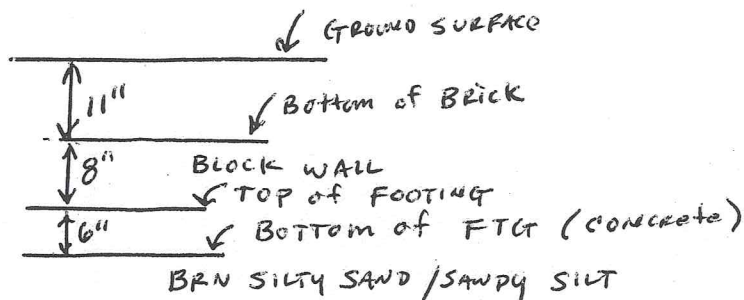 GROUND SURFACE
11"
Bottom of Brick
8"
BLOCK WALL
TOP of FOOTING
6"
BOTTOM of FTG (CONCRETE)
BRN SILTY SAND/SANDY SILT